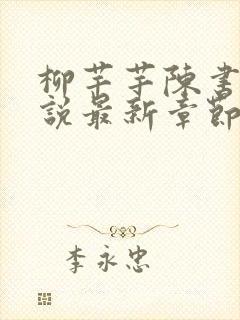 柳芊芊陳書
說最新章節
李永忠